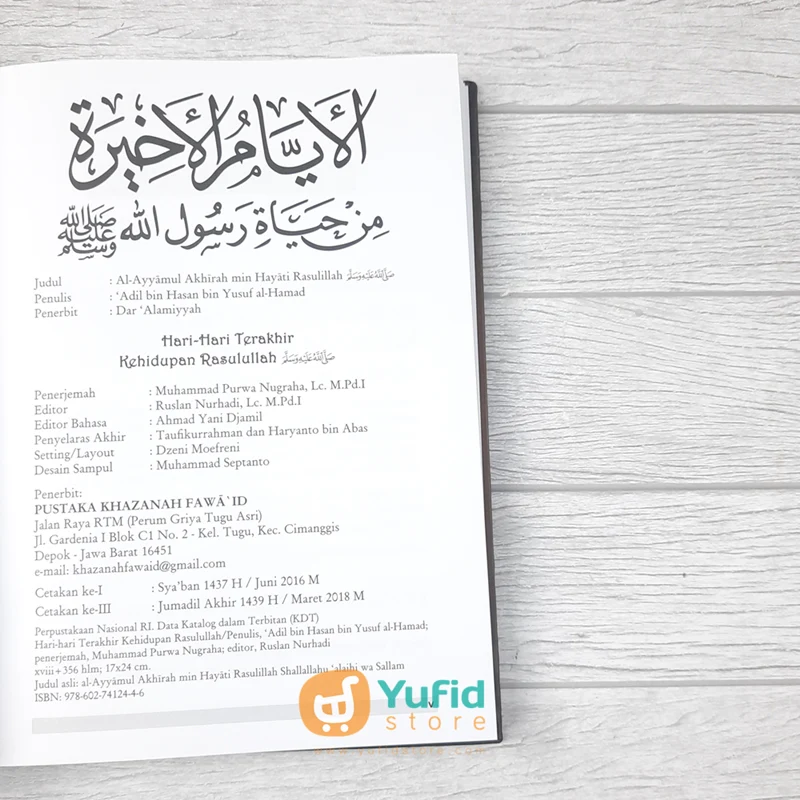 الأَيَّامُ الأَخِيرَة
مِنْ حَيَاةِ رَسُولِ اللهِ صَلَّى اللَّهُ عَلَيْهِ وَسَلَّمَ
Judul : Al-Ayyāmul Akhīrah min Hayāti Rasulillah ﷺ
Penulis : ‘Adil bin Hasan bin Yusuf al-Hamad
Penerbit : Dar ‘Alamiyyah
Hari-Hari Terakhir
Kehidupan Rasulullah ﷺ
Penerjemah : Muhammad Purwa Nugraha, Lc. M.Pd.I
Editor : Ruslan Nurhadi, Lc. M.Pd.I
Editor Bahasa : Ahmad Yani Djamil
Penyelaras Akhir : Taufikurrahman dan Haryanto bin Abas
Setting/Layout : Dzeni Moefreni
Desain Sampul : Muhammad Septanto
Penerbit:
PUSTAKA KHAZANAH FAWĀ`ID
Jalan Raya RTM (Perum Griya Tugu Asri)
Jl. Gardenia I Blok C1 No. 2 - Kel. Tugu, Kec. Cimanggis
Depok - Jawa Barat 16451
e-mail: khazanahfawaid@gmail.com
Cetakan ke-I : Sya’ban 1437 H / Juni 2016 M
Cetakan ke-III : Jumadil Akhir 1439 H / Maret 2018 M
Perpustakaan Nasional RI. Data Katalog dalam Terbitan (KDT)
Hari-hari Terakhir Kehidupan Rasulullah/Penulis, ‘Adil bin Hasan bin Yusuf al-Hamad;
penerjemah, Muhammad Purwa Nugraha; editor, Ruslan Nurhadi
xviii + 356 hlm; 17x24 cm.
Judul asli: al-Ayyāmul Akhīrah min Hayāti Rasulillah Shallallahu ‘alaihi wa Sallam
ISBN: 978-602-74124-4-6
Yufid
store